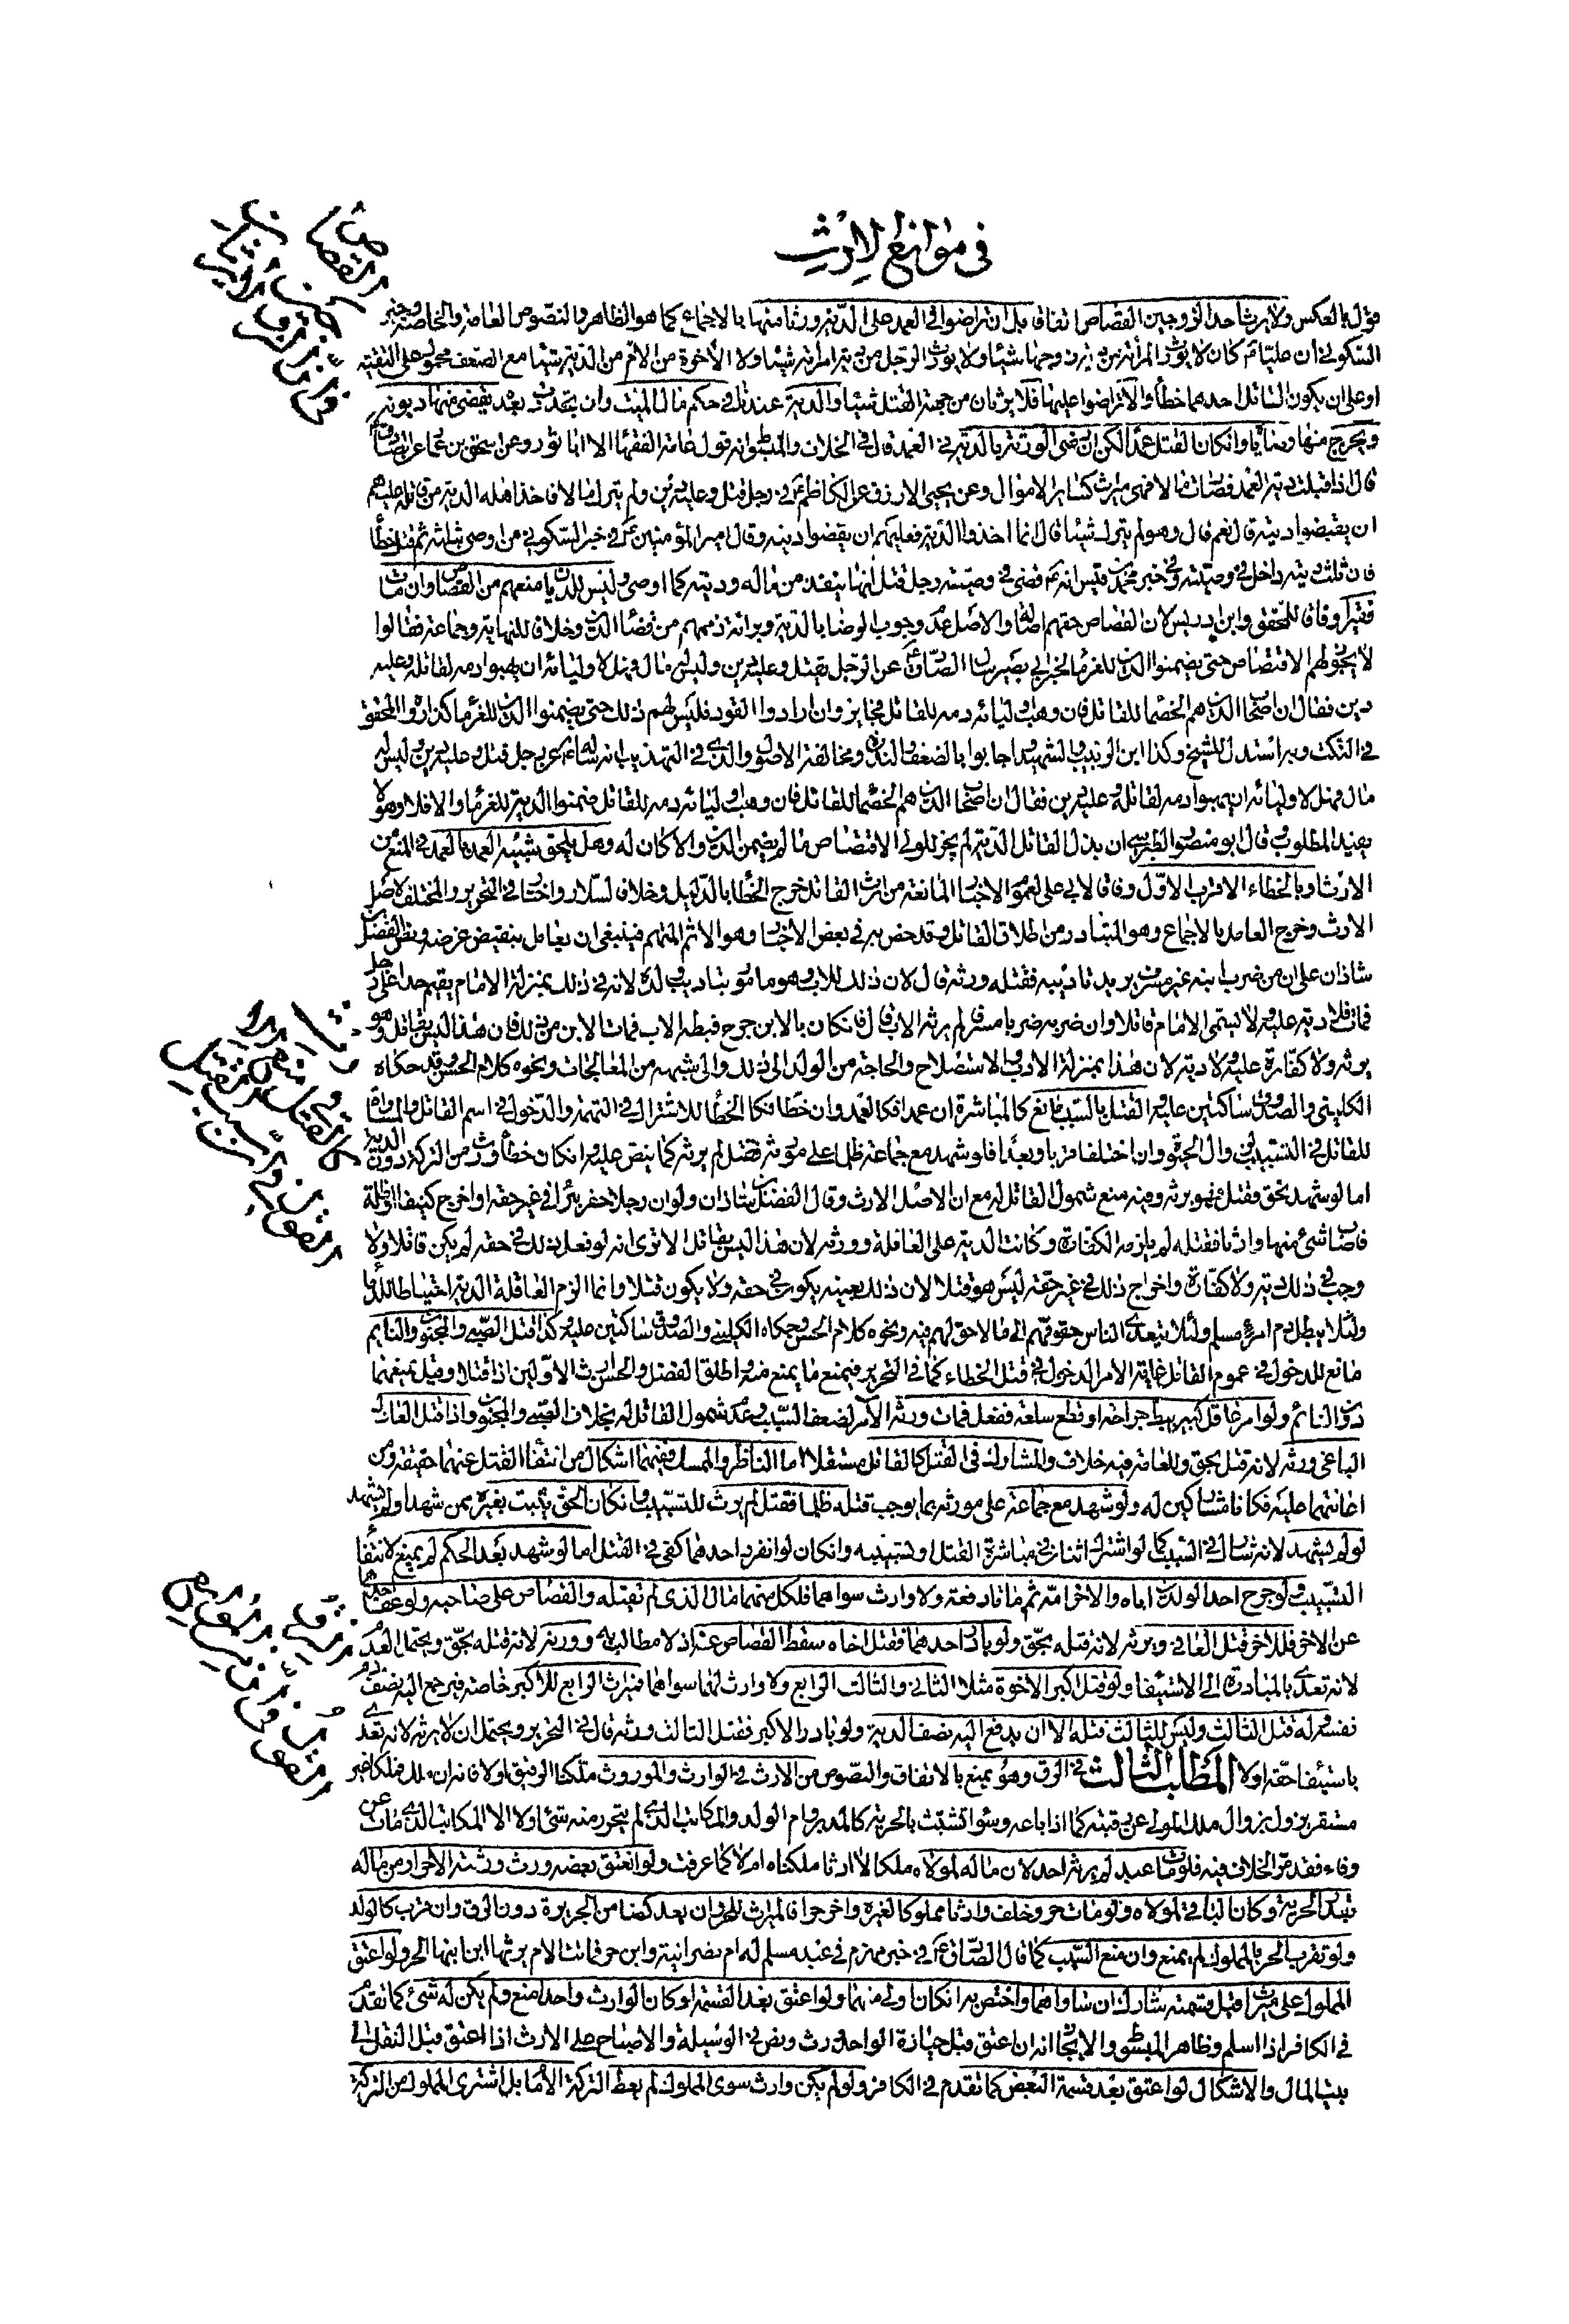 في موانع الارث
قوله بالعكس ولا يرث احد الزوجين القصاص اتفاقا بل ان تراضوا في العمد على الدية ورثا منها بالاجماع كما هو الظاهر والنصوص العامة والخاصة وخبر
السكوني ان عليا كان لا يورث المرأة من دية زوجها شيئا ولا يورث الرجل من دية امرأته شيئا ولا الاخوة من الام من الدية شيئا مع الضعف محمول على التقية
او على ان يكون القاتل احدهما خطأ والا تراضوا عليها فلا يرثان من جهة القتل شيئا والدية عندنا في حكم مال الميت وان يتجدد بعده يقضى منها ديونه
ويخرج منها وصاياه وان كان القتل عمدا لكن ان رضى الورثة بالدية في العمد قال في الخلاف والمبسوط انه قول عامة الفقهاء الا ابا ثور وعن اسحق بن عمار عن الصادق
قال اذا قبلت دية العمد فصارت مالا فهى ميراث كسائر الاموال وعن يحيى الازرق عن الكاظم في رجل قتل وعليه دين ولم يترك مالا فاخذ اهله الدية من قاتله عليهم
ان يقضوا دينه قال نعم قال وهو لم يترك شيئا قال انما اخذوا الدية فعليهم ان يقضوا دينه وقال امير المؤمنين في خبر السكوني من اوصى بثلثه ثم قتل خطأ
فان ثلث ديته داخل في وصيته وفي خبر محمد بن قيس انه قضى في وصيته رجل قتل انها ينفذ من ماله وديته كما اوصى وليس للديان منعهم من القصاص وان مات
فقيرا وفاقا للمحقق وابن ادريس لان القصاص حقهم اصالة والاصل عدم وجوب الرضا بالدية وبرائة ذممهم من قضاء الدين وخلافا للنهاية وجماعة فقالوا
لا يجوز لهم الاقتصاص حتى يضمنوا الدين للغرماء لخبر ابي بصير سأل الصادق عن الرجل يقتل وعليه دين وليس له مال فهل لاوليائه ان يهبوا دمه لقاتله وعليه
دين فقال ان اصحاب الدين هم الخصماء للقاتل فان وهب اوليائه دمه للقاتل فجايز وان ارادوا القود فليس لهم ذلك حتى يضمنوا الدين للغرماء كذا رواه المحقق
في النكت وبه استدل للشيخ وكذا ابن الربيب والشهيد واجابوا بالضعف والندرة ومخالفة الاصول والذي في التهذيب انه سأله عن رجل قتل وعليه دين وليس له
مال فهل لاوليائه ان يهبوا دمه لقاتله وعليه دين فقال ان اصحاب الدين هم الخصماء للقاتل فان وهب اوليائه دمه للقاتل ضمنوا الدية للغرماء والا فلا وهو لا
يفيد المطلوب وقال ابو منصور الطبرسي ان بذل القاتل الدية لم يجز للولي الاقتصاص ما لم يضمن الدين والا كان له وهل يلحق شبيه العمد بالعمد في المنع من
الارث او بالخطاء الاقرب الاول وفاقا لابي علي لعموم الاخبار المانعة من ارث القاتل خرج الخطأ بالدليل وخلافا لسلار واختاره في التحرير والمختلف لاصل
الارث وخرج العامد بالاجماع وهو المتبادر من اطلاق القاتل وقد خص به في بعض الاخبار وهو الاثم المتهم فينبغي ان يعامل بنقيض غرضه ونص الفضل بن
شاذان على ان من ضرب ابنه غير مسرف يريد تاديبه فقتله ورثه قال لان ذلك للاب وهو مامور بتاديب ولده لانه في ذلك بمنزلة الامام يقيم حدا على رجل
فمات فلا دية عليه ولا يسمى الامام قاتلا وان ضربه ضربا مسرفا لم يرثه الاب قال فان كان بالابن جرح فبطه الاب فمات الابن من ذلك فان هذا ليس بقاتل وهو
يرثه ولا كفارة عليه ولا دية لان هذا بمنزلة الادب والاستصلاح والحاجة من الولد الى ذلك والى شبهه من المعالجات ونحوه كلام الحسن وقد حكاه
الكليني والصدوق ساكتين عليه والقتل بالسبب مانع كالمباشرة ان عمدا فكالعمد وان خطأ فكالخطأ للاشتراك في التهمة والدخول في اسم القاتل والمساواة
للقاتل في التسبيب وال الحق وان اختلفا قربا وبعدا فلو شهد مع جماعة ظلما على مورثه فقتل لم يرثه كما ينص عليه وان كان خطأ ورث من التركة دون الدية
اما لو شهد بحق فقتل فهو يرثه ومنه منع شمول القاتل له مع ان الاصل الارث وقال الفضل بن شاذان ولو ان رجلا حفر بئرا في غير حقه او اخرج كنيفا او ظلة
فاصاب شئ منها وارثا فقتله لم يلزمه الكفارة وكانت الدية على العاقلة وورثه لان هذا ليس بقاتل الا ترى انه لو فعل ذلك في حقه لم يكن قاتلا ولا
وجب في ذلك دية ولا كفارة واخراج ذلك في غير حقه ليس هو قتلا لان ذلك بعينه يكون في حقه ولا يكون قتلا وانما الزم العاقلة الدية احتياطا للدماء
ولئلا يبطل دم امرئ مسلم ولئلا يتعدى الناس حقوقهم الى ما لا حق لهم فيه ونحوه كلام الحسن وحكاه الكليني والصدوق ساكتين عليه وكذا قتل الصبي والمجنون والنايم
مانع للدخول في عموم القاتل غاية الامر الدخول في قتل الخطاء كما في التحرير فيمنع ما يمنع منه واطلق الفضل والحسن ارث الاولين اذا قتلا وقيل بمنعهما
دون النائم ولو امر عاقل كبير ببط جراحه او قطع سلعة ففعل فمات ورثه الآمر لضعف السبب وعدم شمول القاتل له بخلاف الصبي والمجنون واذا قتل العادل
الباغي ورثه لانه قتل بحق وللعامة فيه خلاف والمشارك في القتل كالقاتل مستقلا اما الناظر والممسك ففيهما اشكال من انتفاء القتل عنهما حقيقة ومن
اعانتهما عليه فكانا مشاركين له ولو شهد مع جماعة على مورثه بما يوجب قتله ظلما فقتل لم يرث للتسبيب وان كان الحق يثبت بغيره ممن شهد او لم يشهد
لو لم يشهد لانه شارك في السبب كما لو اشترك اثنان في مباشرة القتل او تسبيبه وان كان لو انفرد احدهما كفى في القتل اما لو شهد بعد الحكم لم يمنع لانتفاء
التسبيب ولو جرح احد الولدين اباه والاخر امه ثم ماتا دفعة ولا وارث سواهما فلكل منهما مال الذي لم يقتله والقصاص على صاحبه ولو عفا احدهما
عن الاخر فللاخر قتل العافي ويرثه لانه قتله بحق ولو بادر احدهما فقتل اخاه سقط القصاص عنه اذ لا مطالب به وورثه لانه قتله بحق ويحتمل العدم
لانه تعدى بالمبادرة الى الاستيفاء ولو قتل اكبر الاخوة مثلا الثاني والثالث الرابع ولا وارث لهما سواهما فميراث الرابع للاكبر خاصة فيرجع اليه نصف دم
نفسه وله قتل الثالث وليس للثالث قتله الا ان يدفع اليه نصف الدية ولو بادر الاكبر فقتل الثالث ورثه قال في التحرير ويحتمل ان لا يرثه لانه تعدى
باستيفاء حقه اولا المطلب الثالث في الرق وهو يمنع بالاتفاق والنصوص من الارث في الوارث والموروث ملكنا الرقيق اولا فانه ان ملك فملكا غير
مستقر يزول بزوال ملك المولى عن رقبته كما اذا باعه وسواء تشبث بالحرية كالمدبر وام الولد والمكاتب الذي لم يتحرر منه شئ او لا الا المكاتب الذي مات عن
وفاء فقد مر الخلاف فيه فلو مات عبد لم يرثه احد لان ماله لمولاه ملكا لا ارثا ملكناه ام لا كما عرفت ولو انعتق بعضه ورث ورثته الاحرار من ماله
بقدر الحرية وكان الباقي لمولاه ولو مات حر وخلف وارثا مملوكا لغيره واخر حرا فالميراث للحر وان بعد كضامن الجريرة دون الرق وان قرب كالولد
ولو تقرب الحر بالمملوك لم يمنع وان منع السبب كما قال الصادق في خبر مهزم في عبد مسلم له ام نصرانية وابن حر فماتت الام يرثها ابن ابنها الحر ولو اعتق
المملوك على ميراث قبل قسمته شارك ان ساواهم واختص به ان كان اولى منهم ولو اعتق بعد القسمة او كان الوارث واحدا منع ولم يكن له شئ كما تقدم
في الكافر اذا اسلم وظاهر المبسوط والايجاز انه ان اعتق قبل حيازة الواحد ورث ونص في الوسيلة والاصباح على الارث اذا اعتق قبل النقل الى
بيت المال والاشكال لو اعتق بعد قسمة البعض كما تقدم في الكافر ولو لم يكن وارث سوى المملوك لم يعط التركة الامام بل اشترى المملوك من التركة